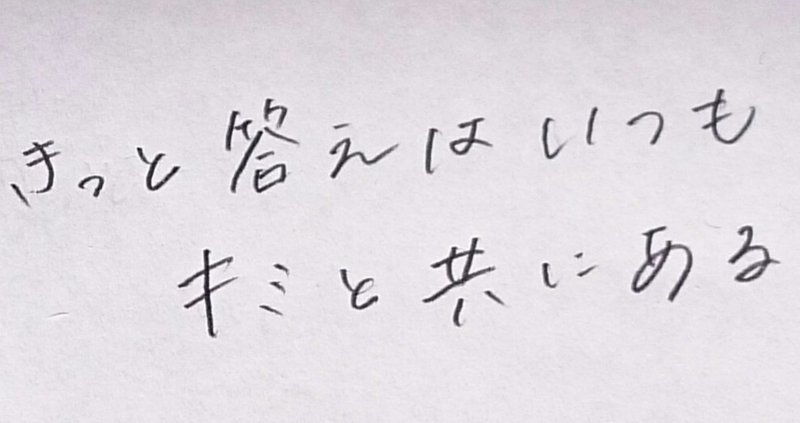 きっと答えはいつも
キミと共にある